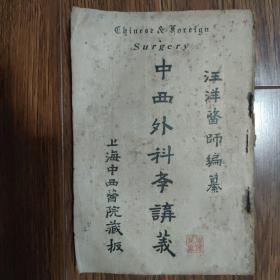 Chinese & Foreign
Surgery
汪洋醫師編纂
中西外科學講義
上海中西醫院藏板